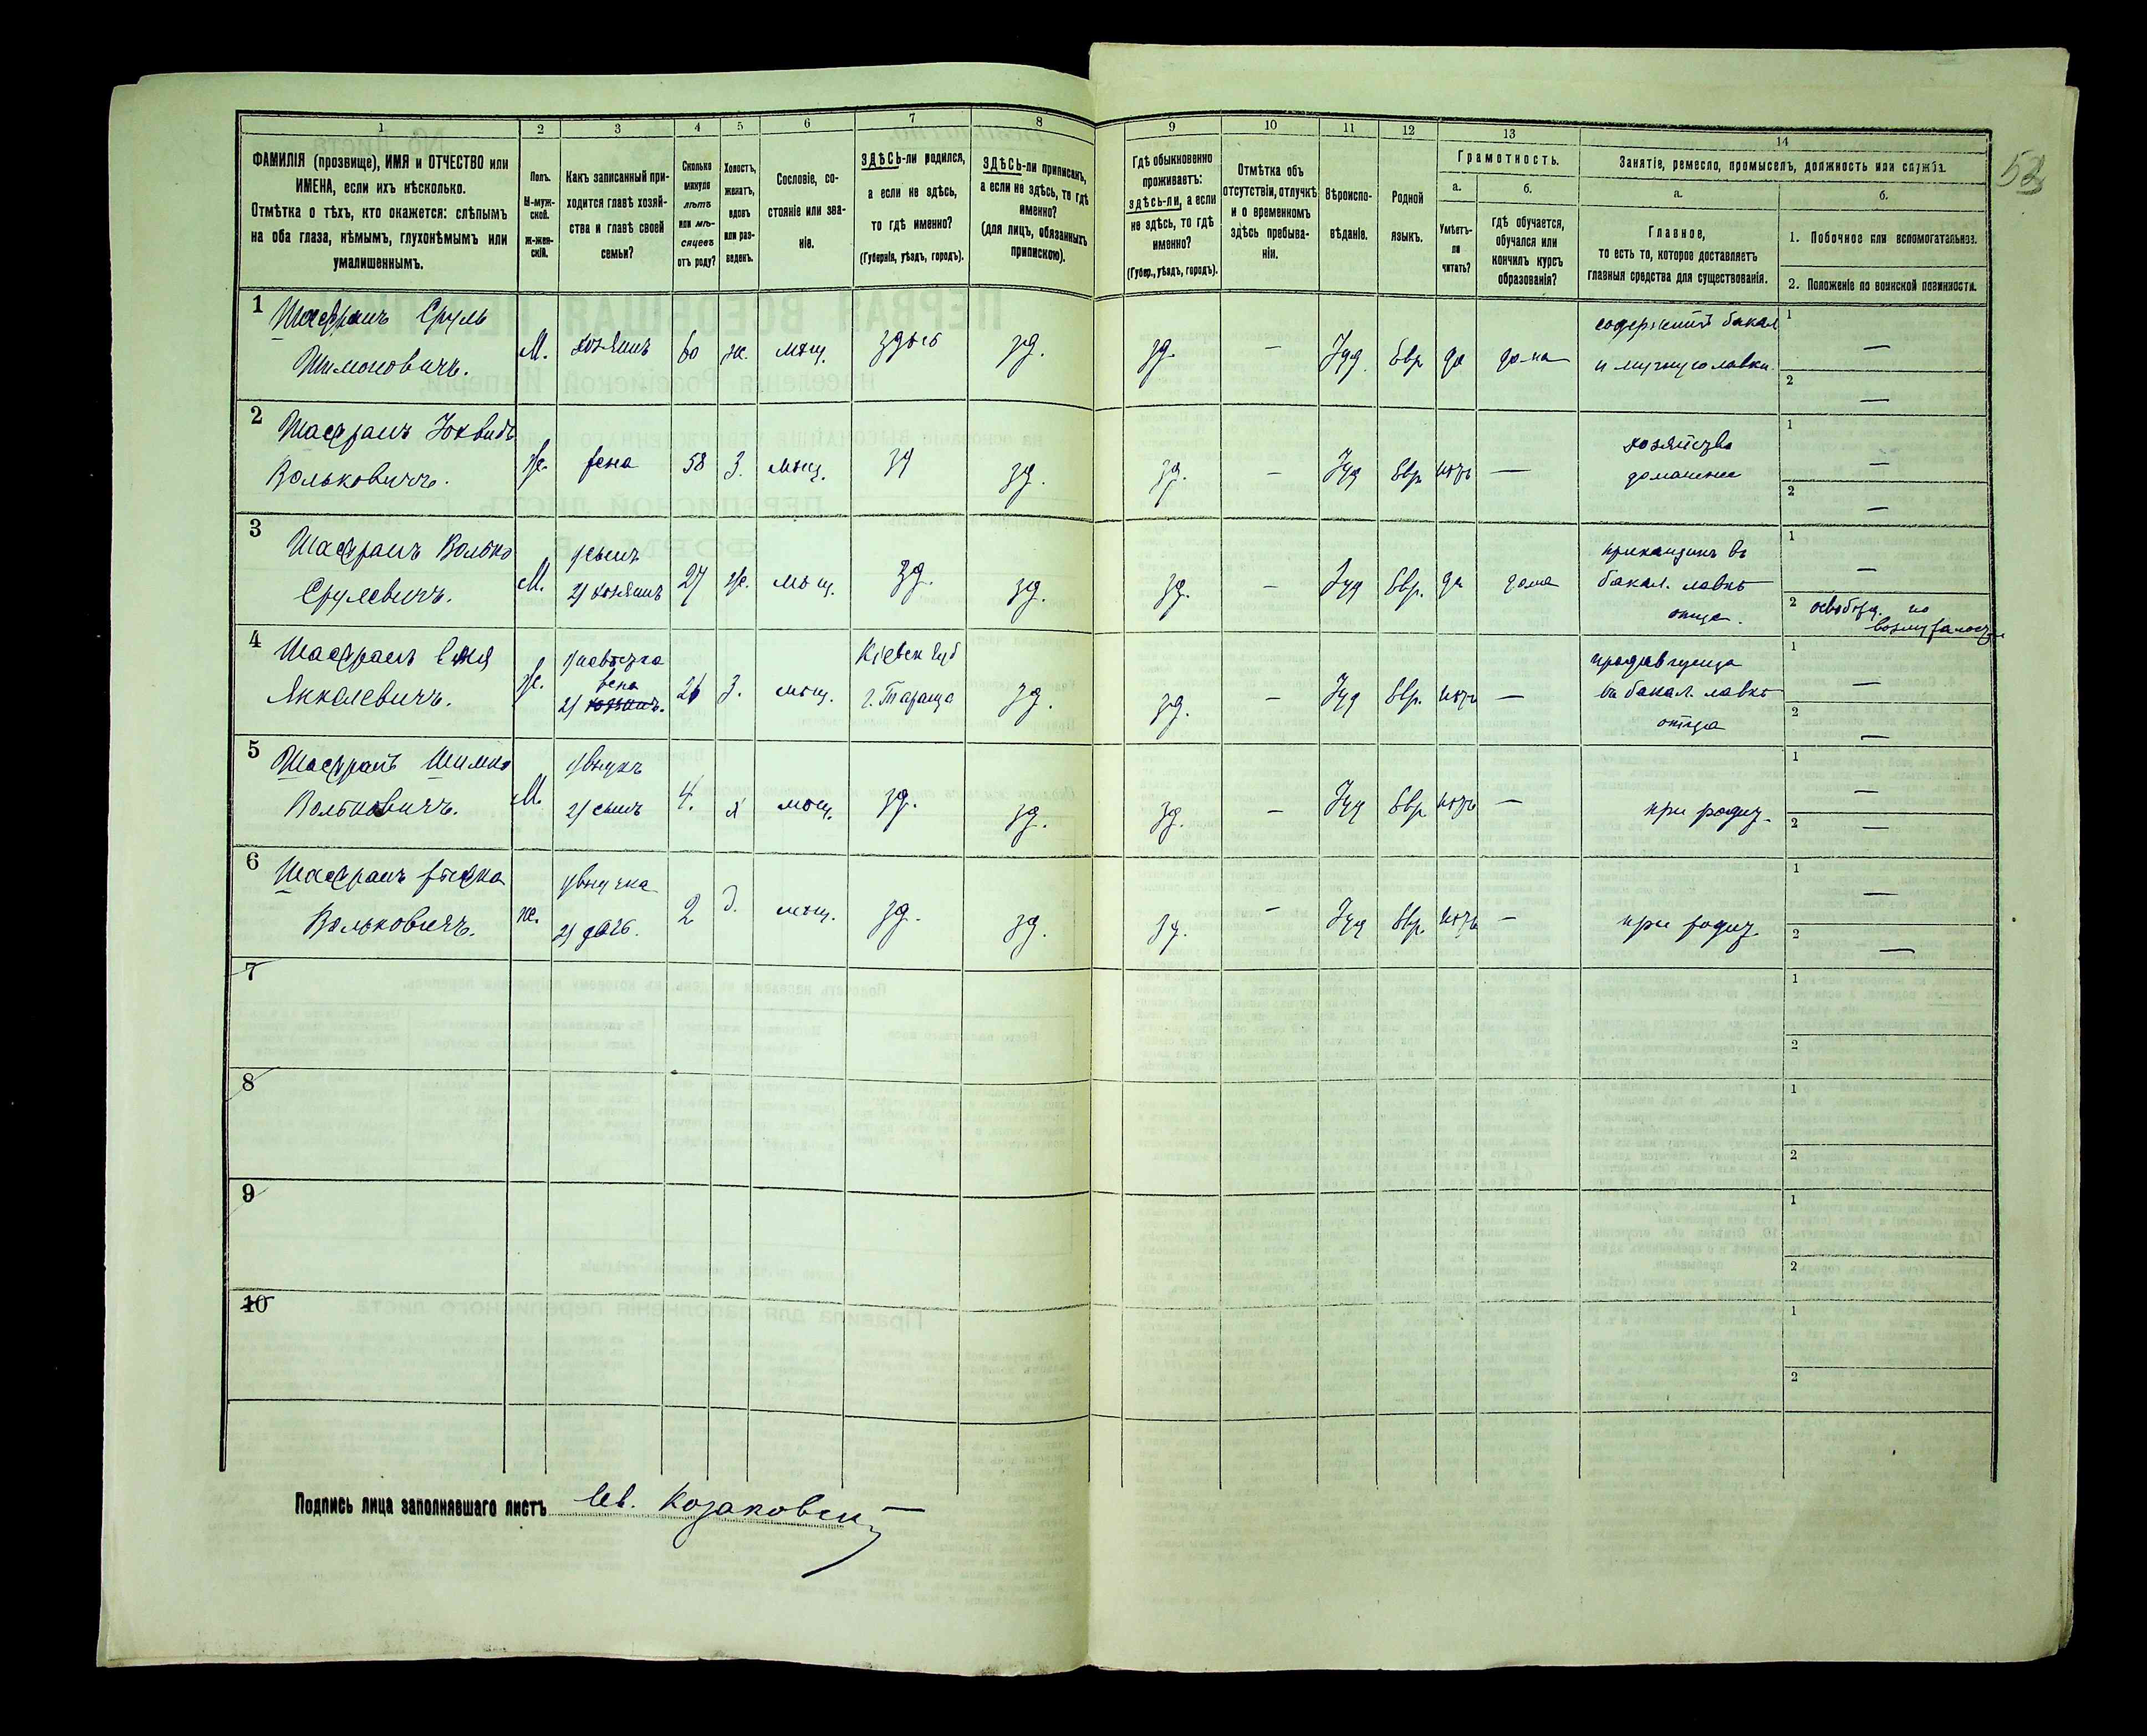 52
1 2 3 4 5 6 7 8 9 10 11 12 13 14
ФАМИЛІЯ (прозвище), ИМЯ и ОТЧЕСТВО или
ИМЕНА, если ихъ нѣсколько.
Отмѣтка о тѣхъ, кто окажется: слѣпымъ
на оба глаза, нѣмымъ, глухонѣмымъ или
умалишеннымъ.
Полъ.
М-муж-
ской.
Ж-жен-
скій.
Какъ записанный при-
ходится главѣ хозяй-
ства и главѣ своей
семьи?
Сколько
минуло
лѣтъ
или мѣ-
сяцевъ
отъ роду?
Холостъ,
женатъ,
вдовъ
или раз-
веденъ.
Сословіе, со-
стояніе или зва-
ніе.
ЗДѢСЬ-ли родился,
а если не здѣсь,
то гдѣ именно?
(Губернія, уѣздъ, городъ).
ЗДѢСЬ-ли приписанъ,
а если не здѣсь, то гдѣ
именно?
(для лицъ, обязанныхъ
припискою).
Гдѣ обыкновенно
проживаетъ:
здѣсь-ли, а если
не здѣсь, то гдѣ
именно?
(Губер., уѣздъ, городъ).
Отмѣтка объ
отсутствіи, отлучкѣ
и о временномъ
здѣсь пребыва-
ніи.
Вѣроиспо-
вѣданіе.
Родной
языкъ.
Грамотность.
а.
Умѣетъ-
ли
читать?
б.
Гдѣ обучается,
обучался или
кончилъ курсъ
образованія?
Занятіе, ремесло, промыселъ, должность или служба.
а.
Главное,
то есть то, которое доставляетъ
главныя средства для существованія.
б.
1. Побочное или вспомогательное.
2. Положеніе по воинской повинности.
1 Шафранъ Сруль
Шимоновичъ. М. хозяинъ 60 ж. мѣщ. здѣсь зд. зд. — Іуд. Евр да дома
содержитъ бакал
и мучную лавки.
1 —
2 —
2 Шафранъ Юхвидъ
Вольковичъ. Ж. жена 58 З. мѣщ. зд зд. зд. — Іуд Евр нѣтъ —
хозяйство
домашнее
1 —
2 —
3 Шафранъ Волько
Срулевичъ. М. 1) сынъ
2) хозяинъ 27 Ж. мѣщ. зд. зд. зд. — Іуд Евр. да дома
приказчикъ въ
бакал. лавкѣ
отца.
1 —
2 освобожд. по
4 Шафранъ
Янкелевичъ. Ж. 1) невѣстка
жена
2) хозяинъ. 26 З. мѣщ. Кіевск губ
г. Тараща зд. зд. — Іуд Евр. нѣтъ —
продавщица
въ бакал. лавкѣ
отца
1 —
2 —
5 Шафранъ Шимко
Вольковичъ. М. 1) внукъ
2) сынъ 4. х мѣщ. зд. зд. зд. — Іуд Евр нѣтъ —
при родит.
1 —
2 —
6 Шафранъ
Вольковичъ. ж. 1) внучка
2) дочь. 2 д. мѣщ. зд. зд. зд. — Іуд Евр. нѣтъ —
при родит.
1 —
2 —
7
1
2
8
1
2
9
1
2
10
1
2
Подпись лица заполнявшаго листъ Козаковскій